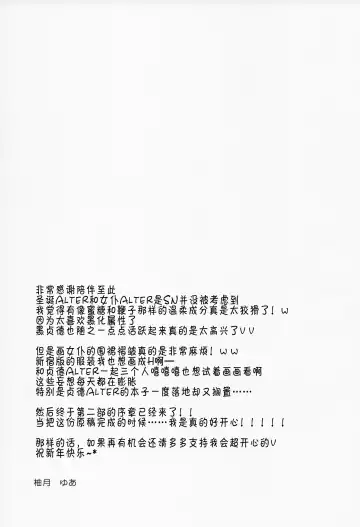 非常感谢陪伴至此
圣诞ALTER和女仆ALTER是SN并没被考虑到
我觉得有像蜜糖和鞭子那样的温柔成分真是太狡猾了！w
因为太喜欢黑化属性了
黑贞德也随之一点点活跃起来真是太高兴了VV
但是画女仆的围裙褶皱真的是非常麻烦！ww
新宿版的服装我也想画成H啊—
和贞德ALTER一起三个人嘻嘻嘻也想试着画画看啊
这些妄想每天都在膨胀
特别是贞德ALTER的本子一度落地却又搁置……
然后终于第二部的序章已经来了！！
当把这份原稿完成的时候……我是真的好开心！！！！！
那样的话，如果再有机会还请多多支持我会超开心的V
祝新年快乐~*
柚月　ゆあ